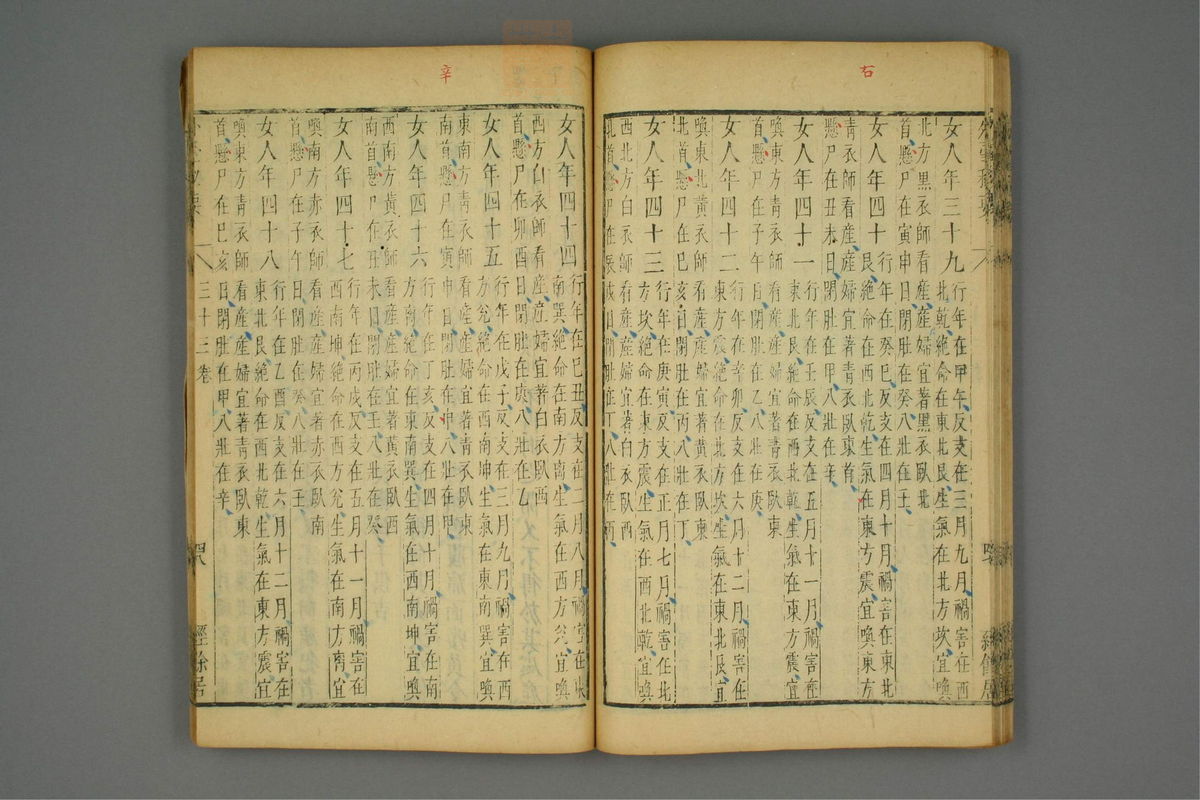 石
女人年三十九
行年在甲午反支在三月九月禍害在西
北乾絕命在東北艮生氣在北方坎宜喚
北方黑衣師看產產婦宜著黑衣臥北
首懸尸在寅申日閉肚在癸八壯在壬
女人年四十
行年在癸巳反支在四月十月禍害在東北
艮絕命在西北乾生氣在東方震宜喚東方
青衣師看產產婦宜著青衣臥東首
懸尸在丑未日閉肚在甲八壯在辛
女人年四十一
行年在壬辰反支在五月十一月禍害在
東北艮絕命在西北乾生氣在東方震宜
喚東方青衣師看產產婦宜著青衣臥東
首懸尸在子午日閉肚在乙八壯在庚
女人年四十二
行年在辛卯反支在六月十二月禍害在
東方震絕命在北方坎生氣在東北艮宜
喚東北黃衣師看產產婦宜著黃衣臥東
北首懸尸在巳亥日閉肚在丙八壯在丁
女人年四十三
行年在庚寅反支在正月七月禍害在北
方坎絕命在東方震生氣在西北乾宜喚
西北方白衣師看產產婦宜著白衣臥西
北首懸尸在辰戌日閉肚在丁八壯在丙
辛
女人年四十四
行年在巳丑反支在二月八月禍害在東
南巽絕命在南方离生氣在西方兊宜喚
西方白衣師看產產婦宜著白衣臥西
首懸尸在卯酉日閉肚在庚八壯在乙
女人年四十五
行年在戊子反支在三月九月禍害在西
方兊絕命在西南坤生氣在東南巽宜喚
東南方青衣師看產產婦宜著青衣臥東
南首懸尸在寅申日閉肚在辛八壯在甲
女人年四十六
行年在丁亥反支在四月十月禍害在南
方离絕命在東南巽生氣在西南坤宜喚
西南方黃衣師看產產婦宜著黃衣臥西
南首懸尸在丑未日閉肚在壬八壯在癸
女人年四十七
行年在丙戌反支在五月十一月禍害在
西南坤絕命在西方兊生氣在南方离宜
喚南方赤衣師看產產婦宜著赤衣臥南
首懸尸在子午日閉肚在癸八壯在壬
女人年四十八
行年在乙酉反支在六月十二月禍害在
東北艮絕命在西北乾生氣在東方震宜
喚東方青衣師看產產婦宜著青衣臥東
首懸尸在巳亥日閉肚在甲八壯在辛
三十三卷 經餘居